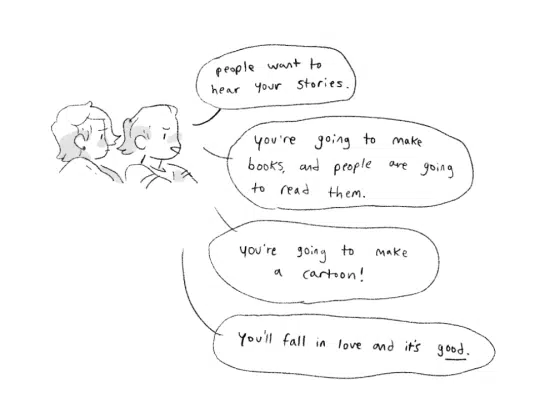 people want to
hear your stories.
you're going to make
books, and people are going
to read them.
you're going to make
a cartoon!
you'll fall in love and it's good.